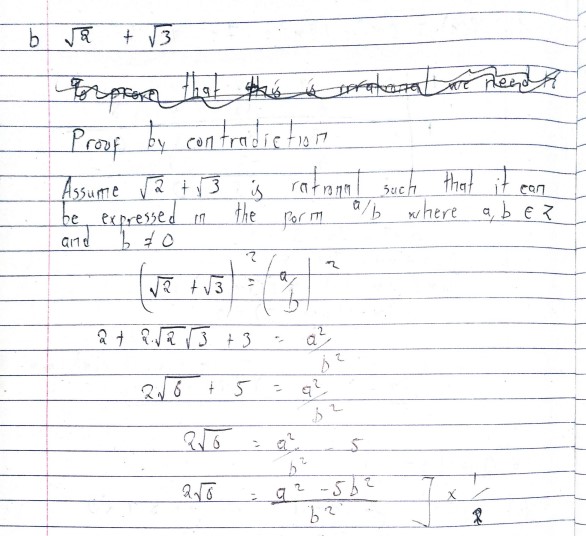 b √2 + √3
To prove that this is irrational we need
Proof by contradiction
Assume √2 + √3 is rational such that it can
be expressed in the form a/b where a, b ∈ Z
and b ≠ 0
(√2 + √3)² = (a/b)²
2 + 2√2√3 + 3 = a²/b²
2√6 + 5 = a²/b²
2√6 = a²/b² - 5
2√6 = (a² - 5b²)/b² ] × 1/2